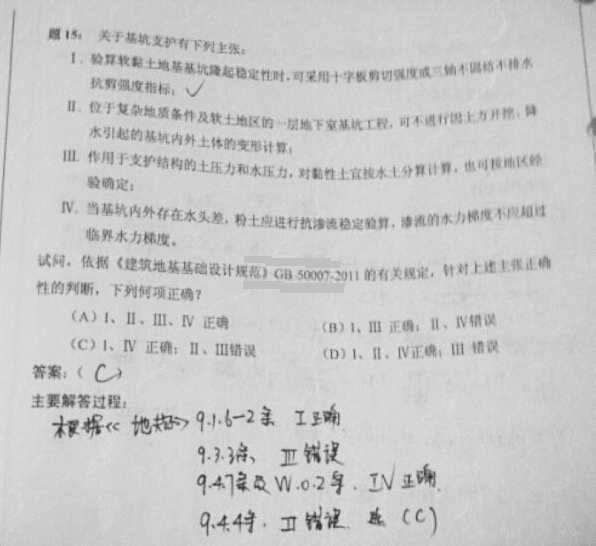 题 15: 关于基坑支护有下列主张:
I. 验算软黏土地基基坑隆起稳定性时,可采用十字板剪切强度或三轴不固结不排水
抗剪强度指标; ✓
II. 位于复杂地质条件及软土地区的一层地下室基坑工程,可不进行因土方开挖、降
水引起的基坑内外土体的变形计算;
III. 作用于支护结构的土压力和水压力,对黏性土宜按水土分算计算,也可按地区经
验确定;
IV. 当基坑内外存在水头差,粉土应进行抗渗流稳定验算,渗流的水力梯度不应超过
临界水力梯度。
试问,依据《建筑地基基础设计规范》GB 50007-2011 的有关规定,针对上述主张正确
性的判断,下列何项正确?
(A) I、II、III、IV 正确
(B) I、III 正确; II、IV错误
(C) I、IV 正确; II、III错误
(D) I、II、IV正确; III 错误
答案:( C )
主要解答过程:
根据<< 地规>> 9.1.6-2条 I正确
9.3.3条、 III 错误
9.4.7条及W.0.2条. IV正确.
9.4.4条. II错误 选 (C)